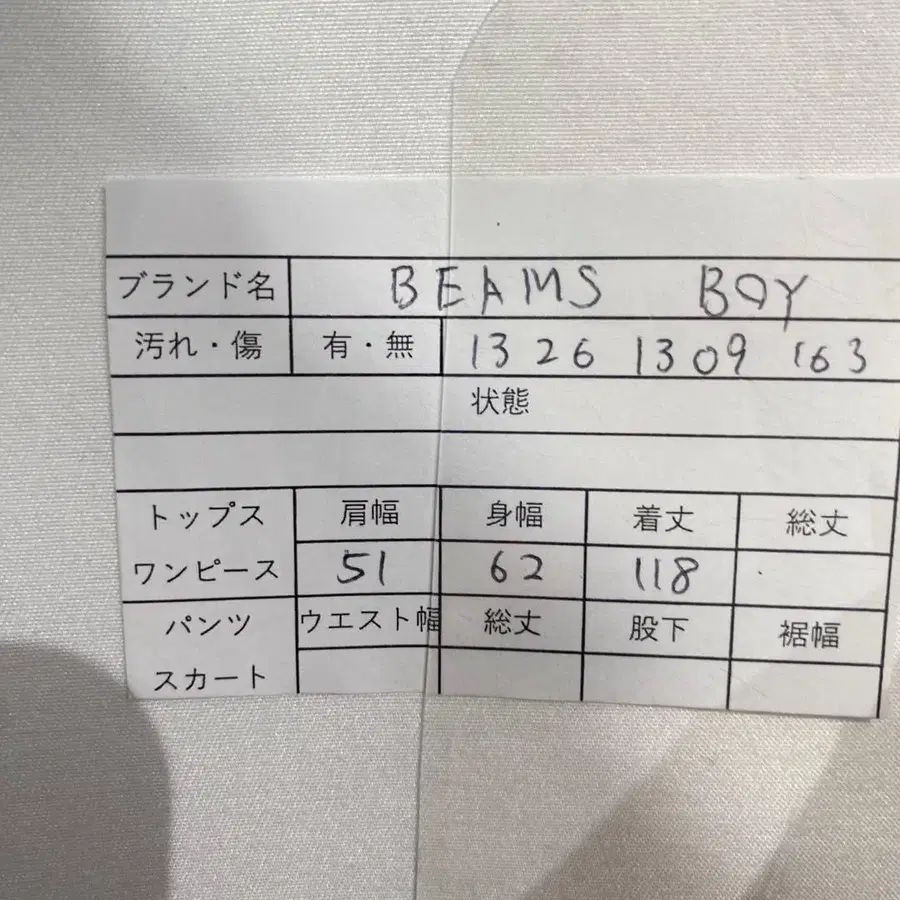 ブランド名 BEAMS BOY
汚れ・傷 有・無 1326 1309 163
状態
トップス 肩幅 身幅 着丈 総丈
ワンピース 51 62 118
パンツ ウエスト幅 総丈 股下 裾幅
スカート